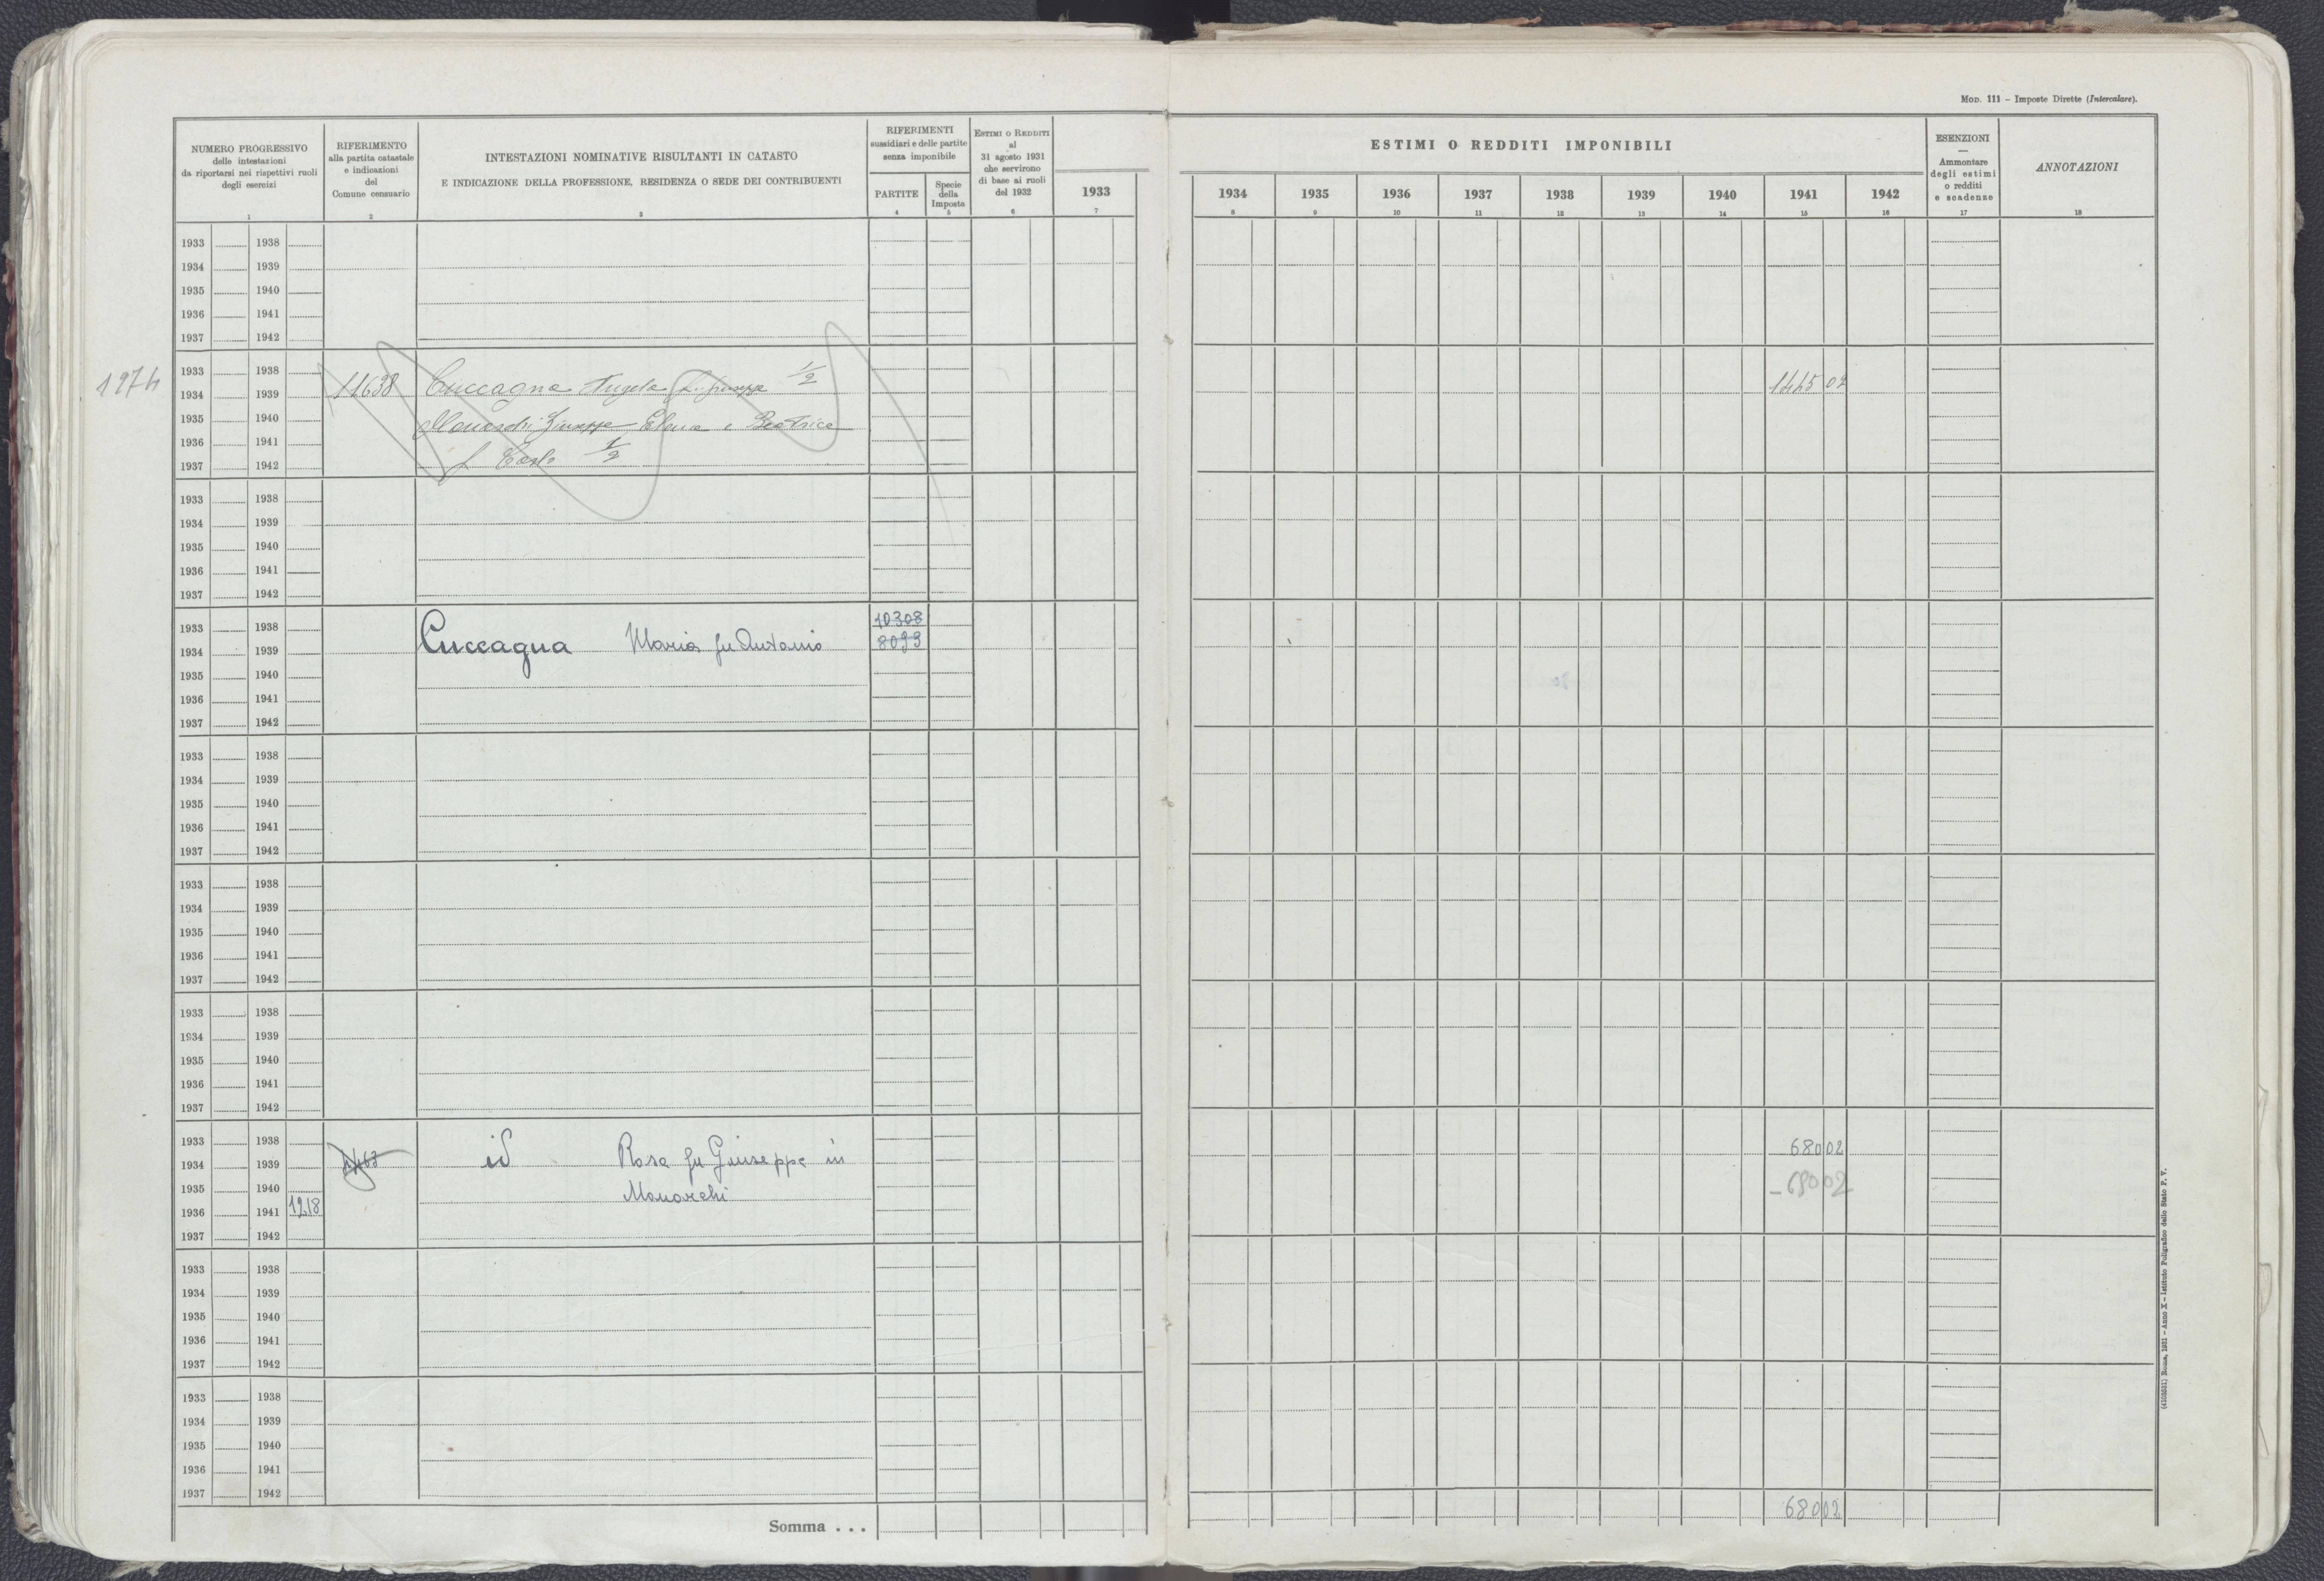 Mod. 111 – Imposte Dirette (Intercalare).
NUMERO PROGRESSIVO
delle intestazioni
da riportarsi nei rispettivi ruoli
degli esercizi
1
RIFERIMENTO
alla partita catastale
e indicazioni
del
Comune censuario
2
INTESTAZIONI NOMINATIVE RISULTANTI IN CATASTO
E INDICAZIONE DELLA PROFESSIONE, RESIDENZA O SEDE DEI CONTRIBUENTI
3
RIFERIMENTI
sussidiari e delle partite
senza imponibile
PARTITE
4
Specie
della
Imposta
5
Estimi o Redditi
al
31 agosto 1931
che servirono
di base ai ruoli
del 1932
6
1933
7
ESTIMI O REDDITI IMPONIBILI
1934 1935 1936 1937 1938 1939 1940 1941 1942
8 9 10 11 12 13 14 15 16
ESENZIONI
—
Ammontare
degli estimi
o redditi
e scadenze
17
ANNOTAZIONI
18
1933 1938
1934 1939
1935 1940
1936 1941
1937 1942
1974
1933 1938
1934 1939 11638 Cuccagna Angela fu Giuseppe 1/2 1445 02
1935 1940
1936 1941 Monarchi Giuseppe Elena e Beatrice
1937 1942 f Carlo 1/2
1933 1938
1934 1939
1935 1940
1936 1941
1937 1942
1933 1938 10308
1934 1939 Cuccagna Maria fu Antonio 8093
1935 1940
1936 1941
1937 1942
1933 1938
1934 1939
1935 1940
1936 1941
1937 1942
1933 1938
1934 1939
1935 1940
1936 1941
1937 1942
1933 1938
1934 1939
1935 1940
1936 1941
1937 1942
1933 1938
1934 1939 id Rosa fu Giuseppe in 680 02
1935 1940 Monarchi – 680 02
1936 1941 1218
1937 1942
1933 1938
1934 1939
1935 1940
1936 1941
1937 1942
1933 1938
1934 1939
1935 1940
1936 1941
1937 1942
Somma . . . 680 02
(4103531) Roma, 1931 – Anno X – Istituto Poligrafico dello Stato P. V.